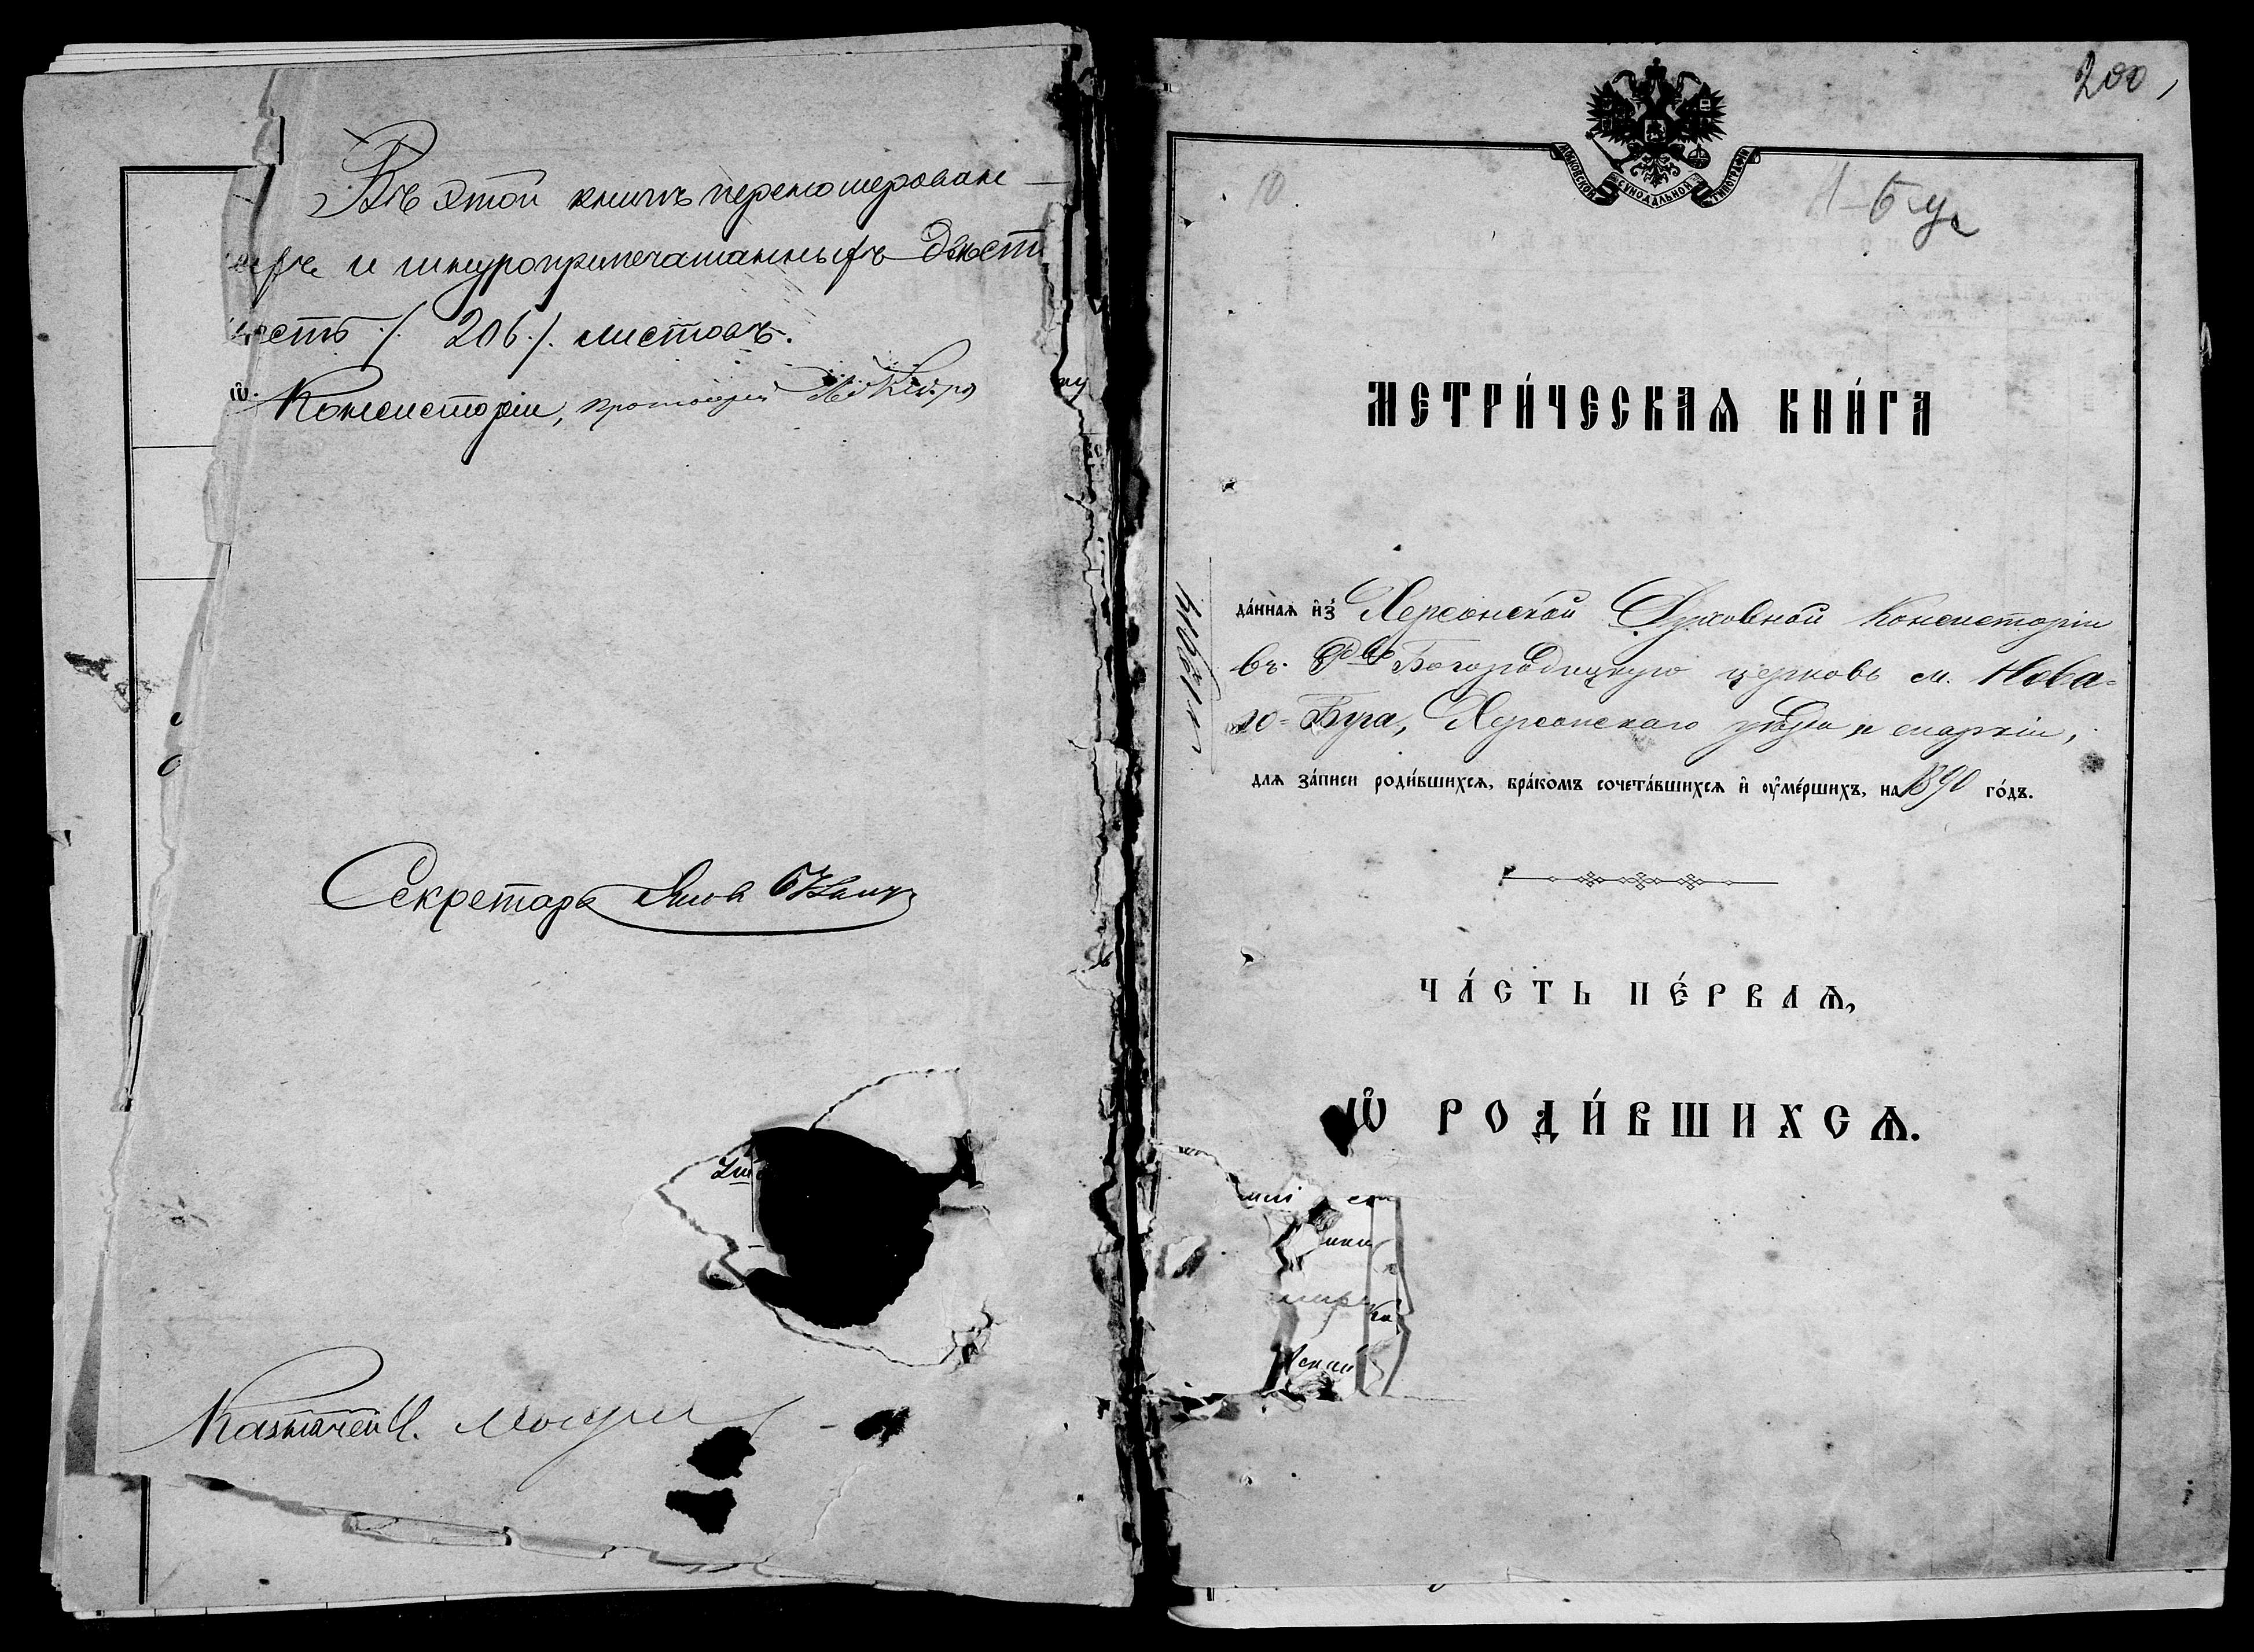 Въ этой книгѣ перенумерован
и шнуроприпечатанныхъ двѣсти
шесть /. 206 ./. листовъ.
Консисторіи, протоіерей
Секретарь
Казначей
200
МОСКОВСКОЙ СѴНОДАЛЬНОЙ ТИПОГРАФІИ
10
МЕТРИ́ЧЕСКАѦ КНИ́ГА
да́ннаѧ и҆з̾ Херсонской Духовной Консисторіи
въ Рдво Богородицкую церковь м. Нова-
го-Буга, Херсонскаго уѣзда и епархіи,
длѧ за́писи роди́вшихсѧ, бра́комъ сочета́вшихсѧ и҆ оу҆ме́ршихъ, на 1890 го́дъ.
ЧА́СТЬ ПЕ́РВАѦ,
Ѡ҆ РОДИ́ВШИХСѦ.